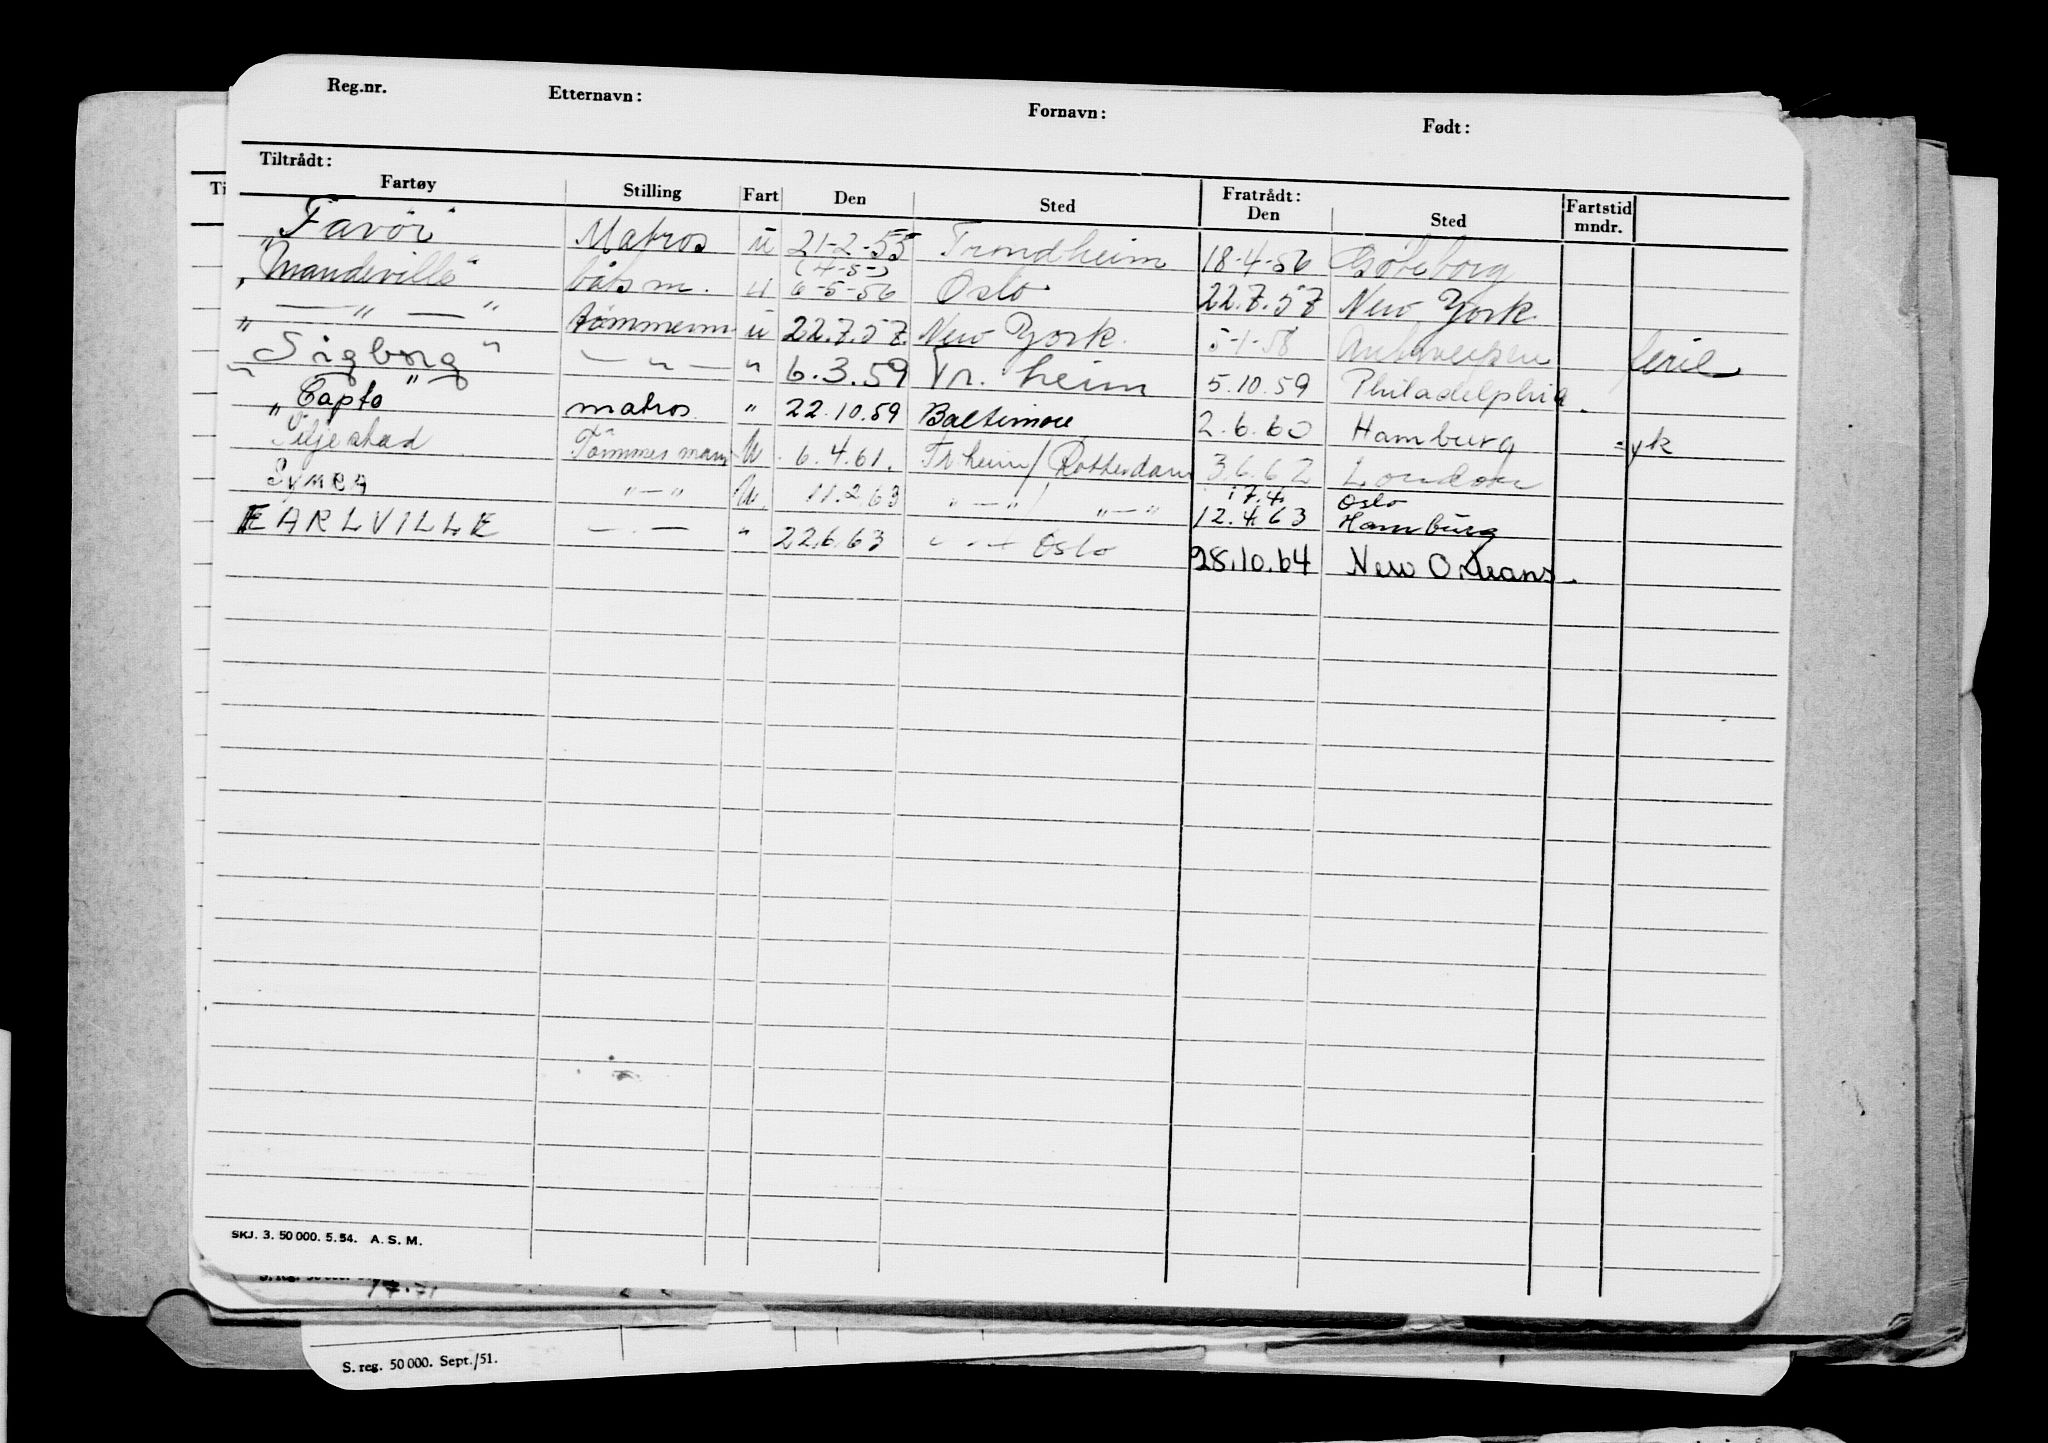 Reg.nr. Etternavn: Fornavn: Født:
Tiltrådt: Fratrådt:
Ti Fartøy Stilling Fart Den Sted Den Sted Fartstid mndr.
"Favör" Matros u 21-2-55 Trondheim 18-4-56 Göteborg
"Mandeville" båtsm. u (4-5-) 6-5-56 Oslo 22.7.57 New York.
— " — " tømmerm. u 22.7.57. New York. 5-1-58 Antwerpen ferie
"Sigborg" — " — " 6.3.59 Tr. heim 5.10.59 Philadelphia.
"Capto" matros. " 22.10.59 Baltimore 2.6.60 Hamburg syk
"Siljestad Tömmermann U. 6.4.61. Tr heim/Rotterdam 3.6.62 London
" — " U. 11.2.63 " — " / " — " 17.4. Oslo
12.4.63 Hamburg
EARLVILLE — . — " 22.6.63 Oslo 28.10.64 New Orleans.
SKJ. 3. 50 000. 5. 54. A. S. M.
S. reg. 50 000. Sept./51.